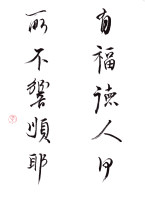 有福德人何
所不響順耶